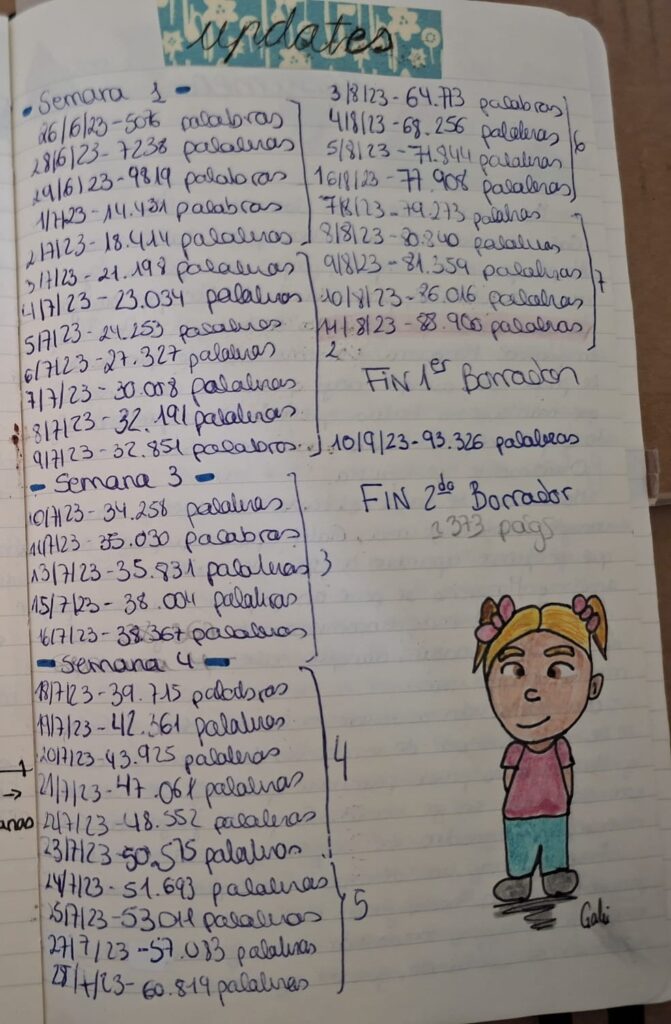 updates
- Semana 1 -
26/6/23-5076 palabras
28/6/23-7238 palabras
29/6/23-9819 palabras
1/7/23-14.431 palabras
2/7/23-18.414 palabras
3/7/23-21.198 palabras
4/7/23-23.034 palabras
5/7/23-24.253 palabras
6/7/23-27.327 palabras
7/7/23-30.008 palabras
8/7/23-32.191 palabras
9/7/23-32.851 palabras
- Semana 3 -
10/7/23-34.258 palabras
11/7/23-35.030 palabras
13/7/23-35.831 palabras
15/7/23-38.004 palabras
16/7/23-38.367 palabras
3
- Semana 4 -
18/7/23-39.715 palabras
19/7/23-42.361 palabras
20/7/23-43.925 palabras
21/7/23-47.061 palabras
22/7/23-48.552 palabras
23/7/23-50.575 palabras
4
24/7/23-51.693 palabras
25/7/23-53011 palabras
27/7/23-57.083 palabras
28/7/23-60.819 palabras
5
3/8/23-64.773 palabras
4/8/23-68.256 palabras
5/8/23-71.844 palabras
6/8/23-77.908 palabras
6
7/8/23-79.273 palabras
8/8/23-80.840 palabras
9/8/23-81.359 palabras
10/8/23-86.016 palabras
11/8/23-88.900 palabras
7
2
FIN 1er Borrador
10/9/23-93.326 palabras
FIN 2do Borrador
373 págs
Gabi